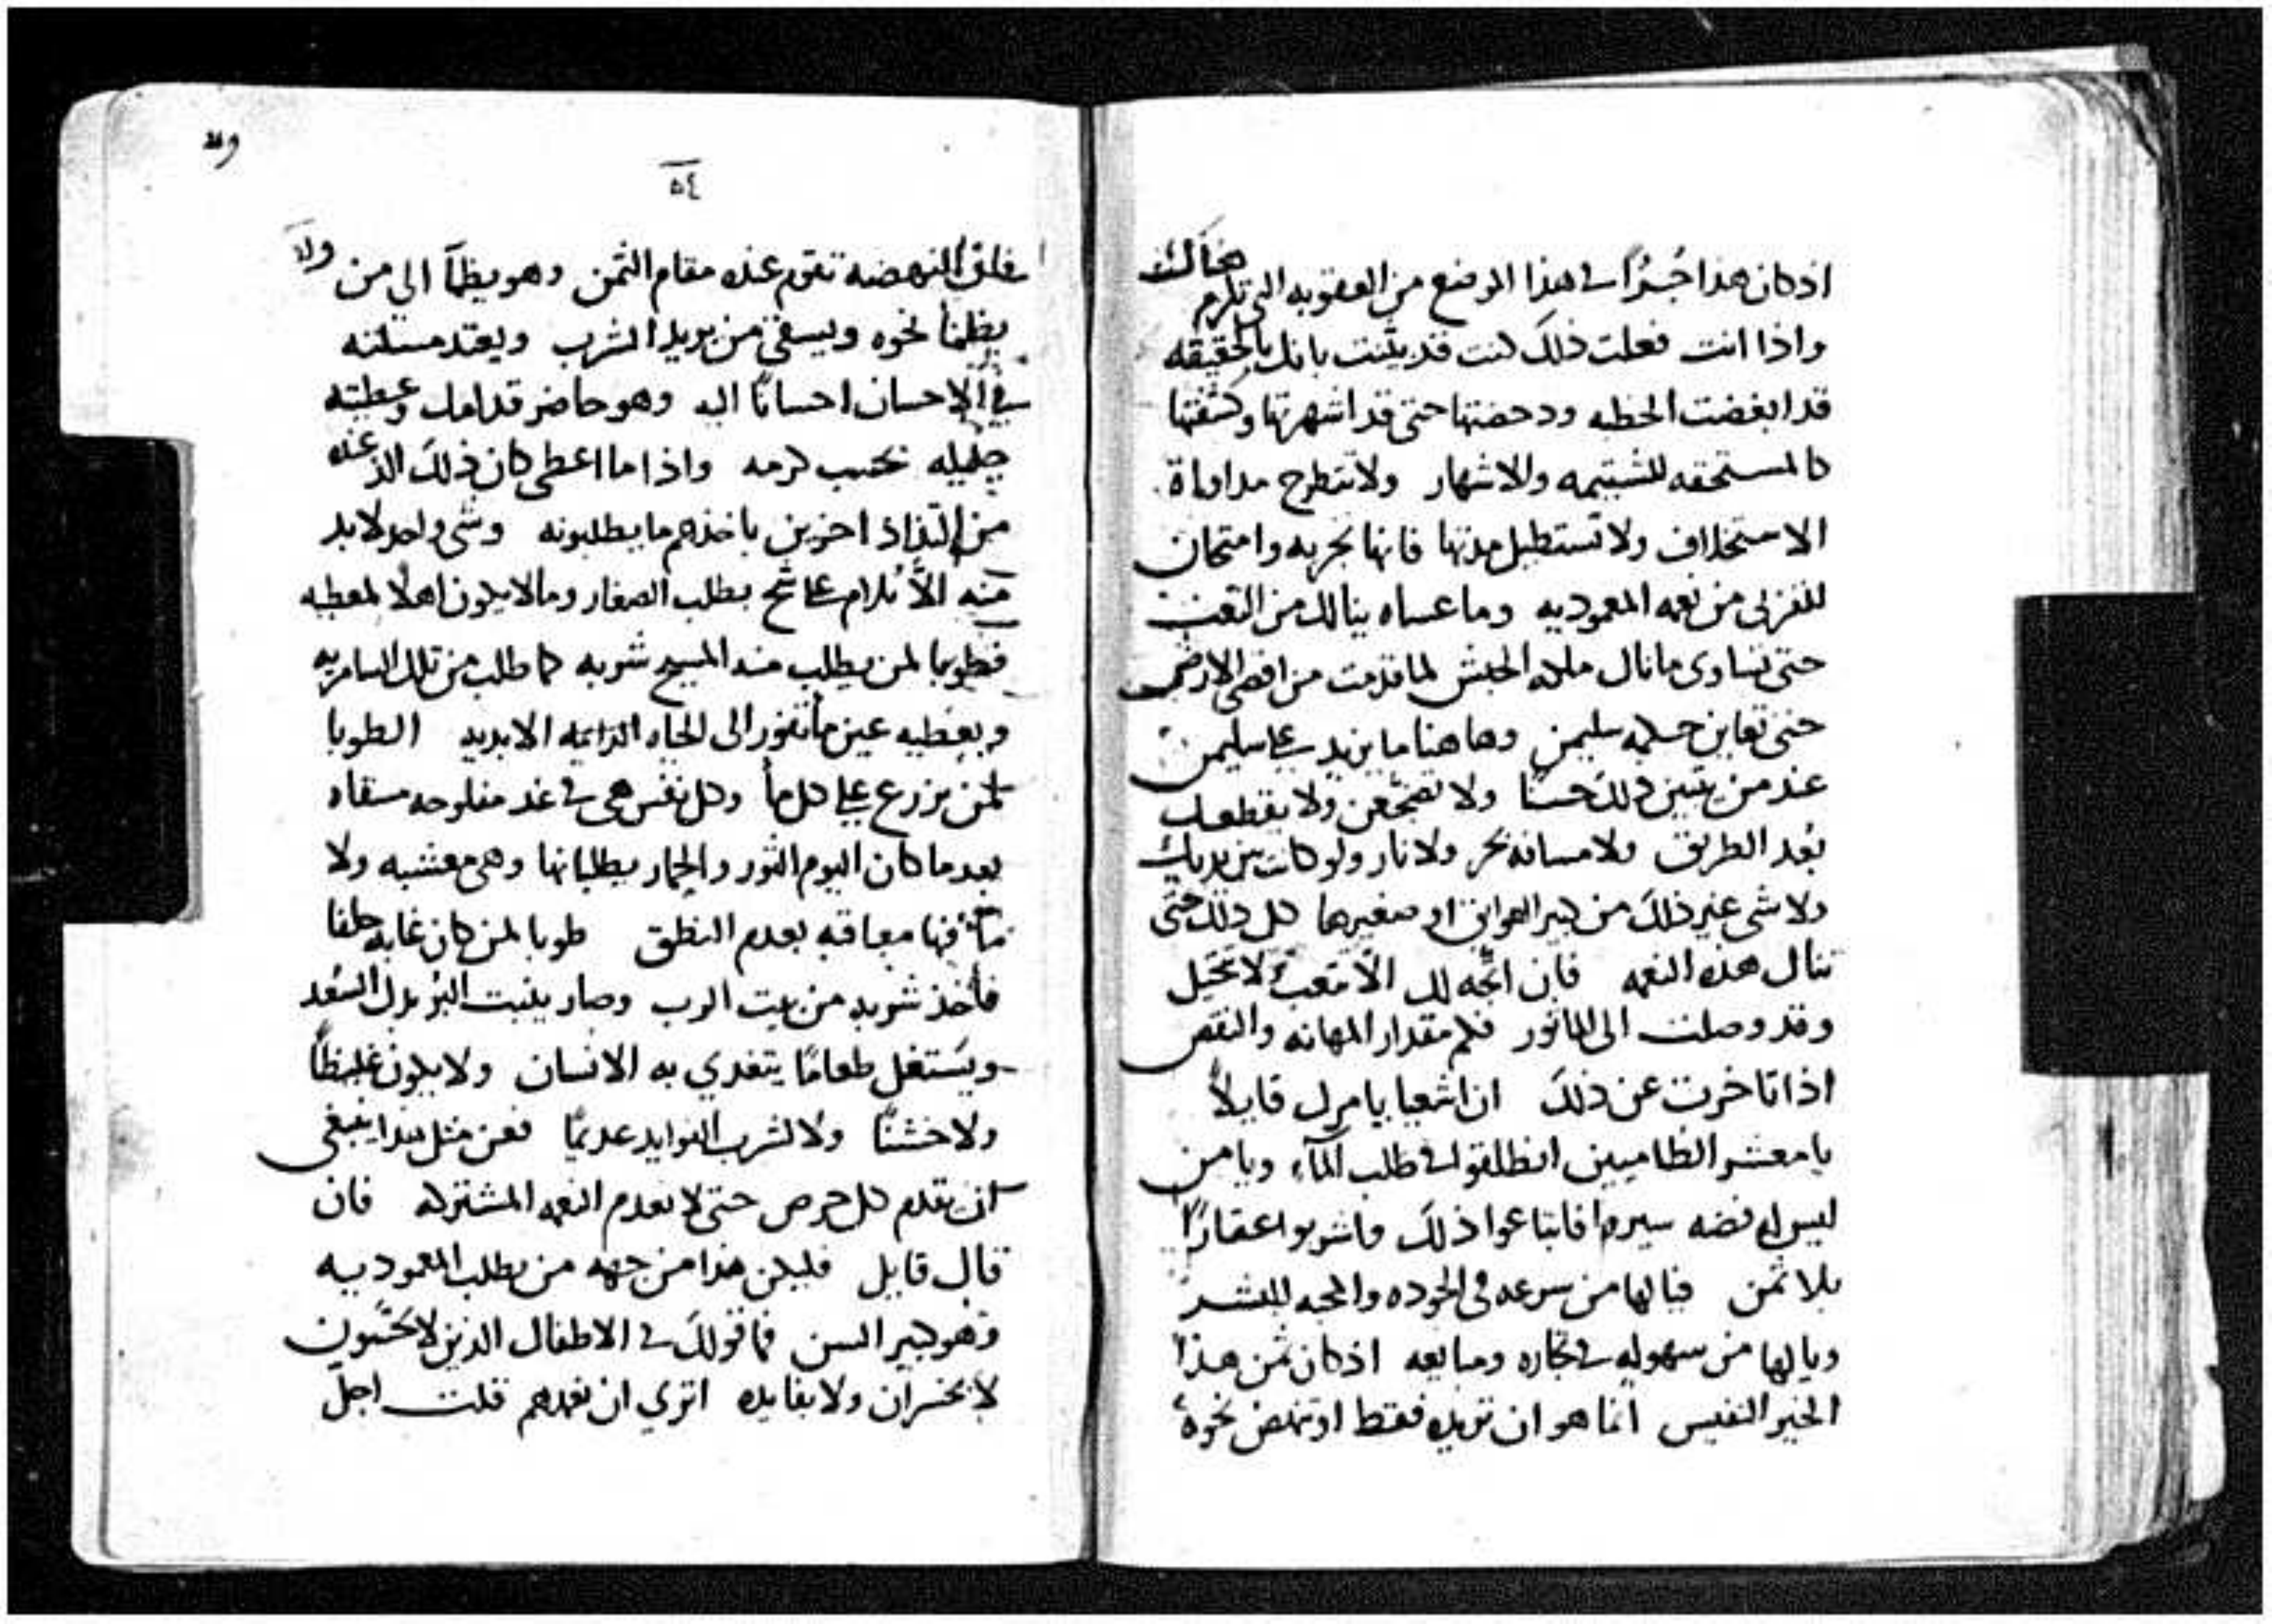 اذ كان هذا جُزُاً في هذا الوضع من العقوبه التي تلزم هناك
واذا انت فعلت ذلك كنت قد بيّنت بانك بالحقيقه
قد ابغضت الخطيه ودحضتها حتى قد اشهرتها وكشفتها
كالمستحقه للشتيمه والاشهار ولا تتطرح مداواة
الاستحلاف ولا تستطيل مدتها فانها تجربه وامتحان
للغزلى من نعمه المعموديه وما عساه ينالك من التعب
حتى تساوى ما نال ملكه الحبش لما قدمت من اقصى الارض
حتى تعاين حكمه سليمن وهاهنا ما يزيد على سليمن
عند من يتبين ذلك حسناً ولا تضجعن ولا يقطعك
بُعد الطريق ولا مسافه بحر ولا نار ولو كانت بين يديك
ولا شى غير ذلك من كبير العوايق او صغيرها كل ذلك حتى
تنال هذه النعمه فان اتجه لك الا تتعب لا تتخيل
وقد وصلت الى الماثور فكم مقدار المهانه والنقص
اذا تاخرت عن ذلك ان اشعيا يامرك قايلاً
يا معشر الظاميين انطلقوا في طلب المآء ويا من
ليس له فضه سيروا فابتاعوا ذلك واشربوا عقاراً
بلا ثمن فيا لها من سرعه في الجوده والمحبه للبشر
ويا لها من سهوله في تجاره ومبايعه اذ كان ثمن هذا
الخير النفيس انما هو ان تريده فقط او تنهض نحوه
ولد
٥٤
فلك النهضه تقوم عنده مقام الثمن وهو يظمآ الى من ولا
يظمأ نحوه ويسقي من يريد الشرب ويعتد مسئلته
في الاحسان احساناً اليه وهو حاضر قدامك وعطيته
جليله بحسب كرمه واذا ما اعطى كان ذلك الذ عنده
من التذاذ اخرين باخذهم ما يطلبونه وشى واحد لا بد
منه الاَّ نُلام على شح بطلب الصغار وما لا يكون اهلا لمعطيه
فطوبا لمن يطلب منه المسيح شربه كما طلب من تلك السامريه
ويعطيه عين مأ تفور الى الحياه الدايمه الابديه الطوبا
لمن يزرع على كل مأ وكل نفس هى في غد مفلوحه مسقاه
بعد ما كان اليوم الثور والحمار يطليانها وهى معشبه ولا
مأ فيها معاقه بعدم النطق طوبا لمن كان غابه حلفا
فأخذ شربه من بيت الرب وصار ينبت البُر بدل السُعد
ويَستغل طعاماً يتغدي به الانسان ولا يكون غليظاً
ولا خشناً ولا لشرب الفوايد عديماً فعن مثل هذا ينبغى
ان نقدم كل حرص حتى لا نعدم النعمه المشتركه فان
قال قايل فليكن هذا من جهه من يطلب المعموديه
وهو كبير السن فما قولك في الاطفال الذين لا يحسون
لا بخسران ولا بفايده اتري ان نعمدهم قلت اجل